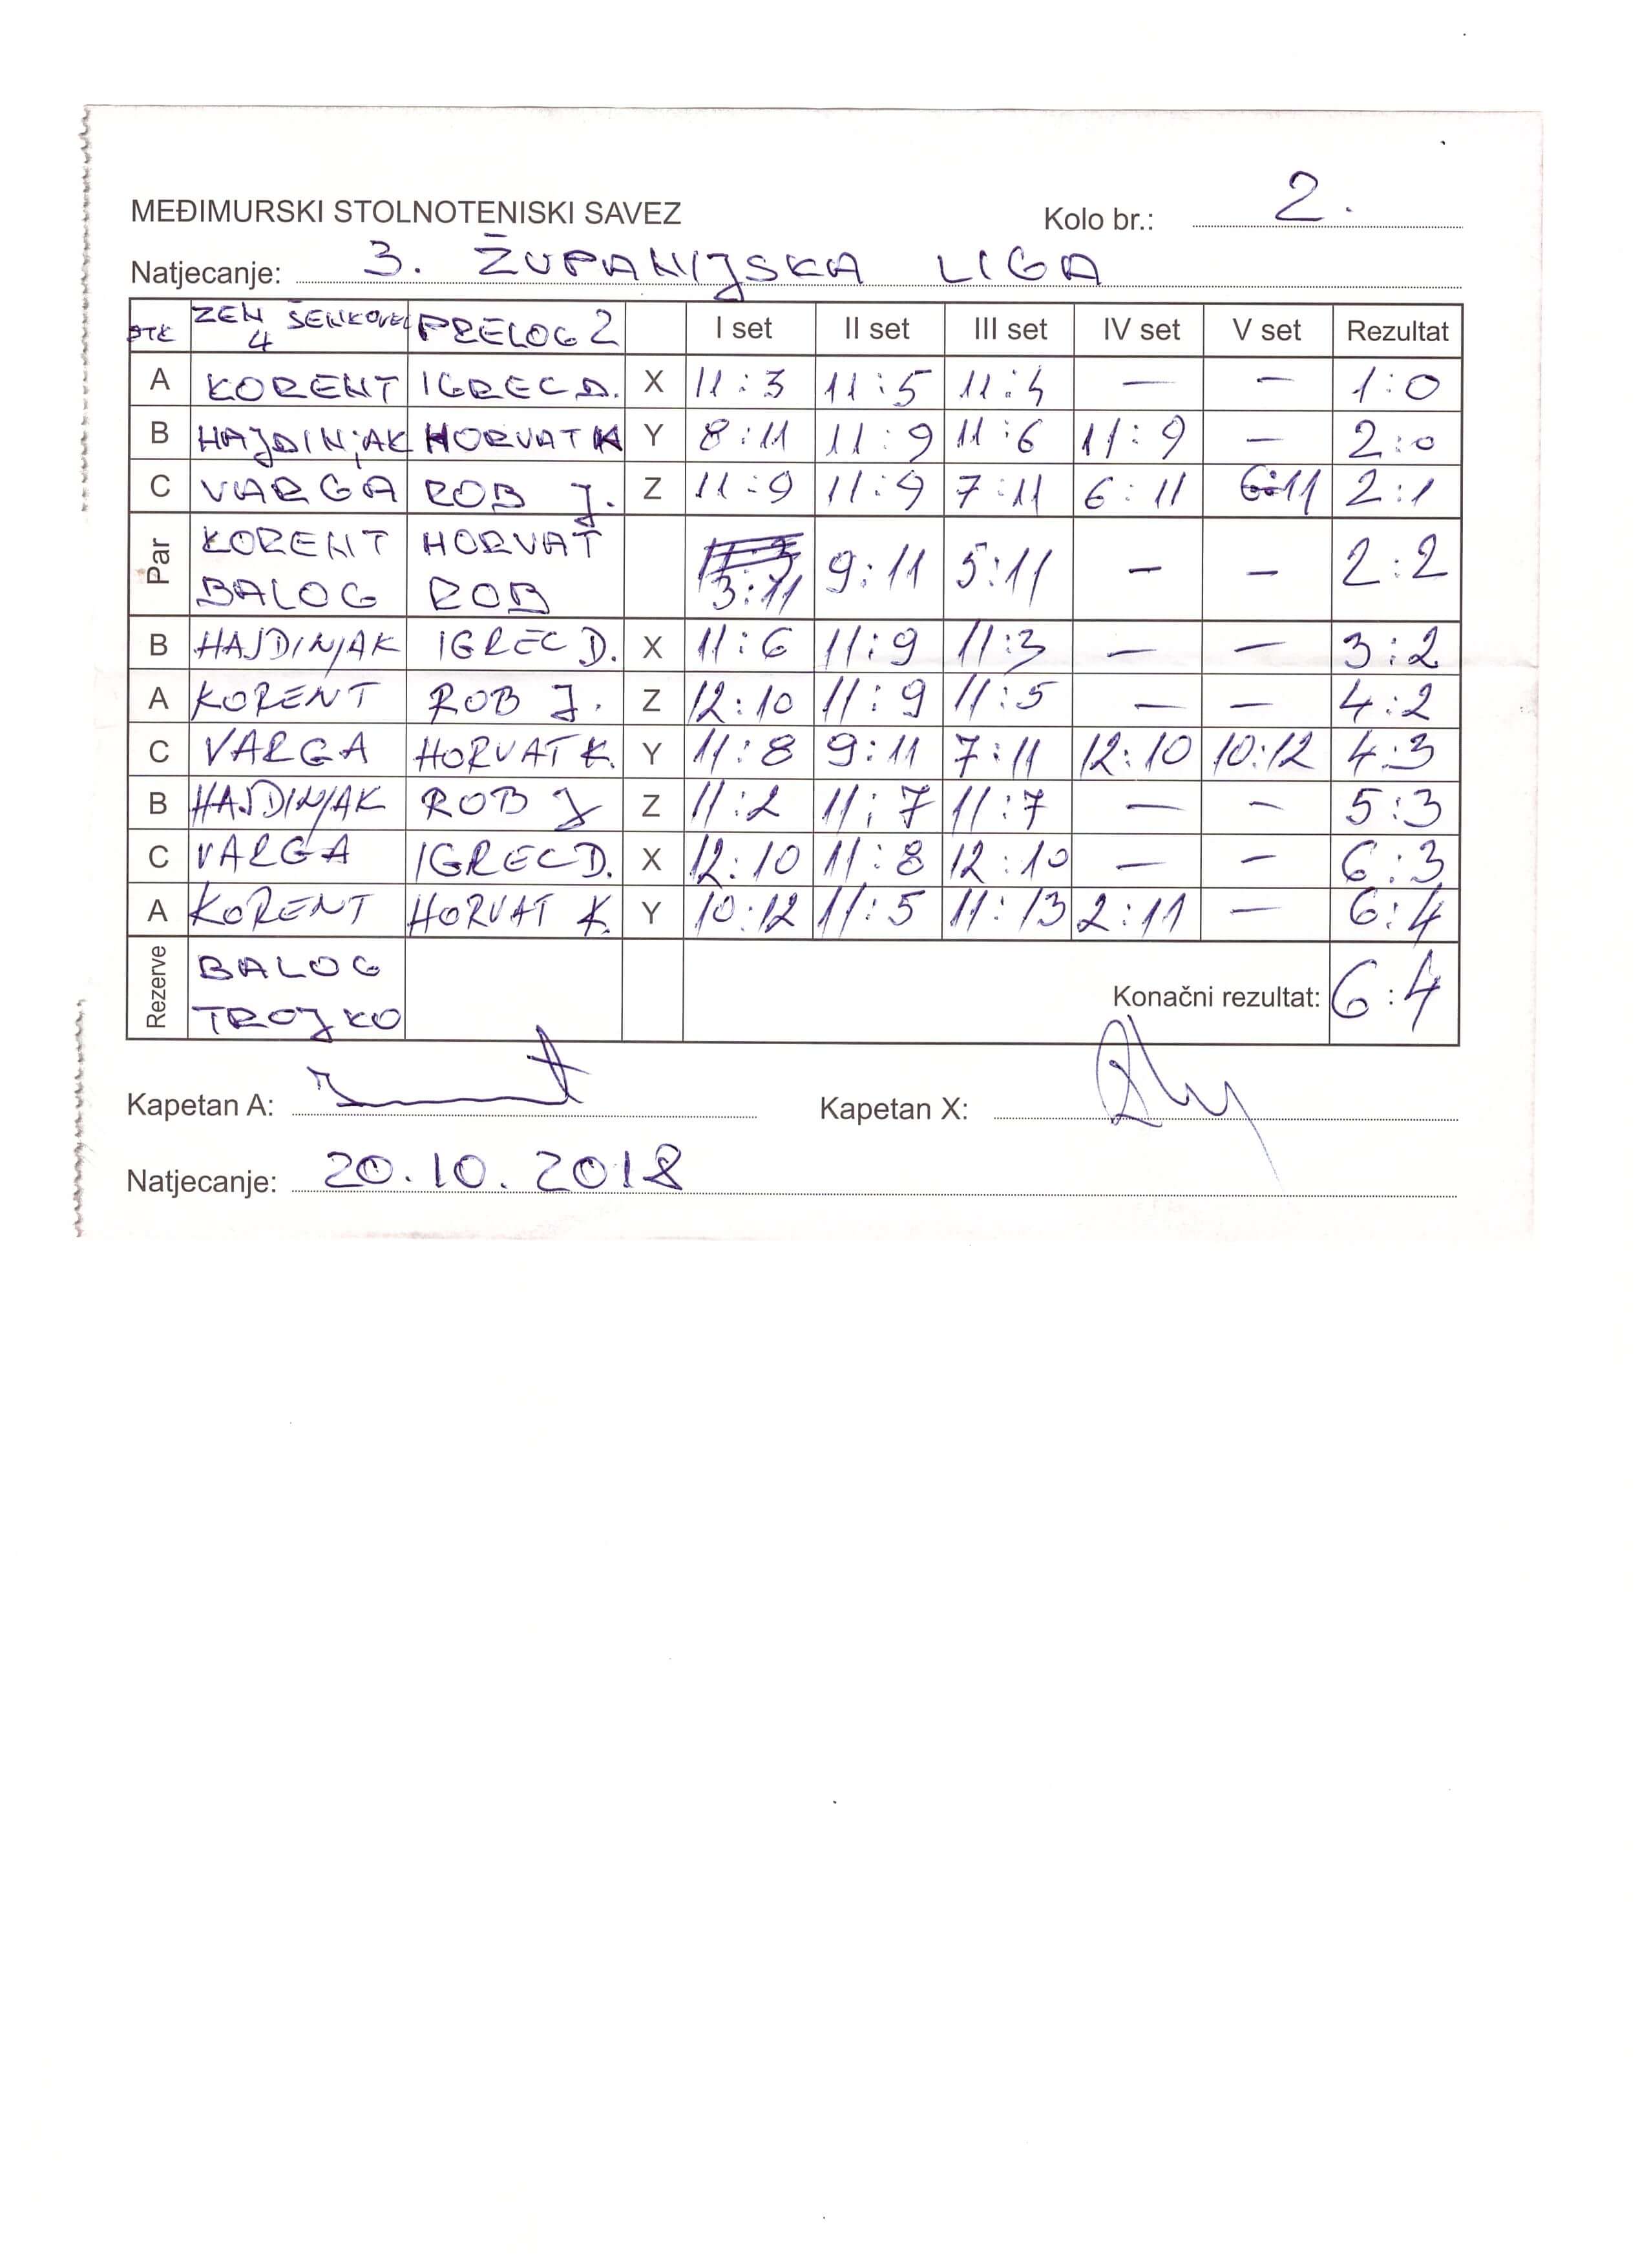 MEĐIMURSKI STOLNOTENISKI SAVEZ Kolo br.: 2.
Natjecanje: 3. ŽUPANIJSKA LIGA
STK ZEN ŠENKOVEC 4 PRELOG 2 I set II set III set IV set V set Rezultat
A KORENT IGREC D. X 11:3 11:5 11:4 — — 1:0
B HAJDINJAK HORVAT K Y 8:11 11:9 11:6 11:9 — 2:0
C VARGA ROB J. Z 11:9 11:9 7:11 6:11 6:11 2:1
Par KORENT HORVAT
BALOG ROB 3:11 9:11 5:11 — — 2:2
B HAJDINJAK IGREC D. X 11:6 11:9 11:3 — — 3:2
A KORENT ROB J. Z 12:10 11:9 11:5 — — 4:2
C VARGA HORVAT K. Y 11:8 9:11 7:11 12:10 10:12 4:3
B HAJDINJAK ROB J Z 11:2 11:7 11:7 — — 5:3
C VARGA IGREC D. X 12:10 11:8 12:10 — — 6:3
A KORENT HORVAT K. Y 10:12 11:5 11:13 2:11 — 6:4
Rezerve BALOG
TROJKO Konačni rezultat: 6:4
Kapetan A: Kapetan X:
Natjecanje: 20.10.2018